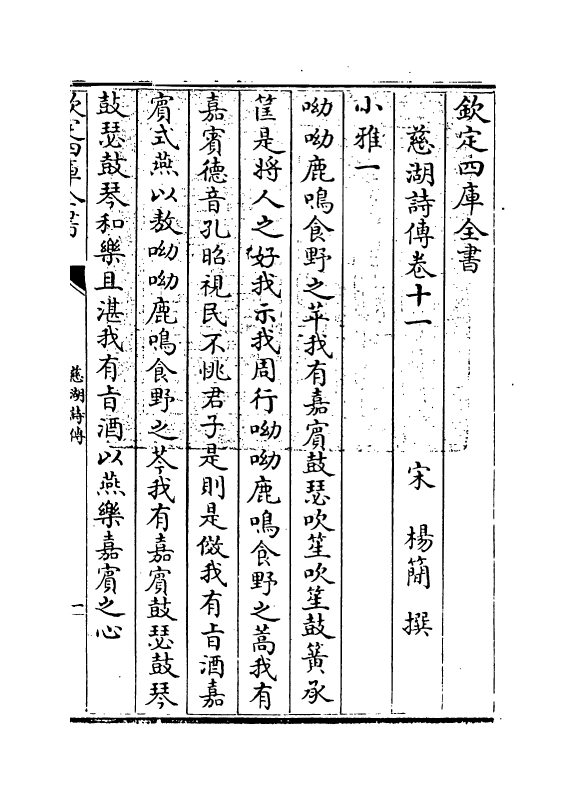 欽定四庫全書
慈湖詩傳卷十一
宋 楊簡 撰
小雅一
呦呦鹿鳴食野之苹我有嘉賓鼓瑟吹笙吹笙鼓簧承
筐是將人之好我示我周行呦呦鹿鳴食野之蒿我有
嘉賓德音孔昭視民不恌君子是則是傚我有旨酒嘉
賓式燕以敖呦呦鹿鳴食野之芩我有嘉賓鼓瑟鼓琴
鼓瑟鼓琴和樂且湛我有旨酒以燕樂嘉賓之心
欽定四庫全書
慈湖詩傳
一